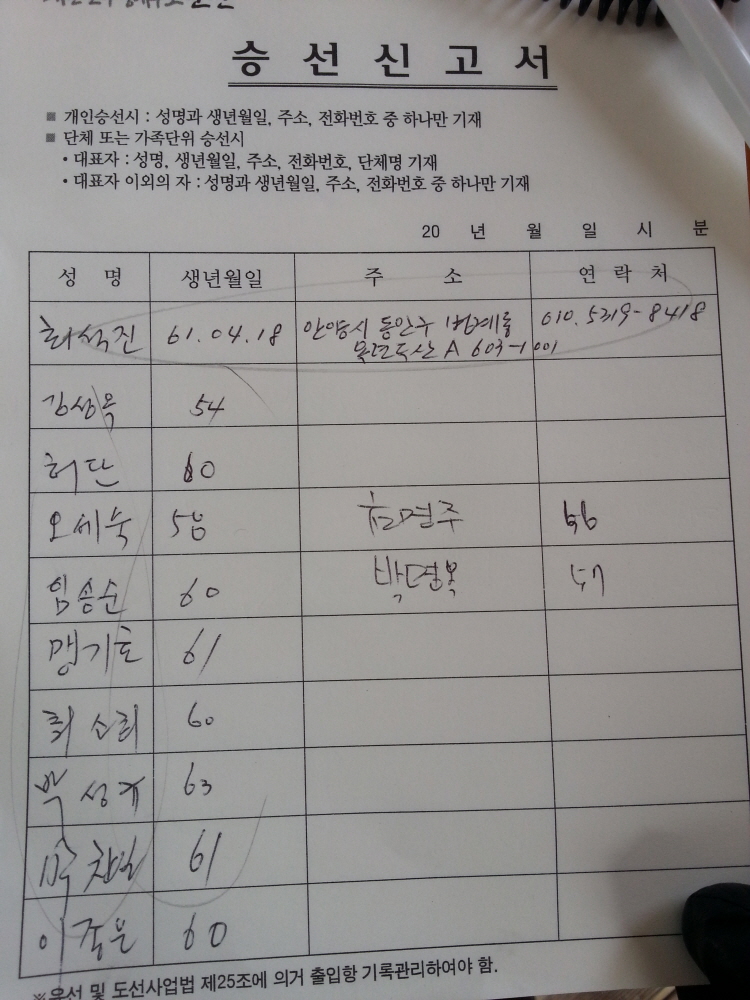 승선신고서
▣ 개인승선시 : 성명과 생년월일, 주소, 전화번호 중 하나만 기재
▣ 단체 또는 가족단위 승선시
• 대표자 : 성명, 생년월일, 주소, 전화번호, 단체명 기재
• 대표자 이외의 자 : 성명과 생년월일, 주소, 전화번호 중 하나만 기재
20 년 월 일 시 분
성 명 생년월일 주 소 연 락 처
최석진 61.04.18 안양시 동안구 범계동 010.5319-8418
A 603-1001
김성목 54
허단 60
오세욱 56
임승순 60 박명복 57
맹기호 61
최 소희 60
박 성계 63
박 찬일 61
이 중은 60
※유선 및 도선사업법 제25조에 의거 출입항 기록관리하여야 함.